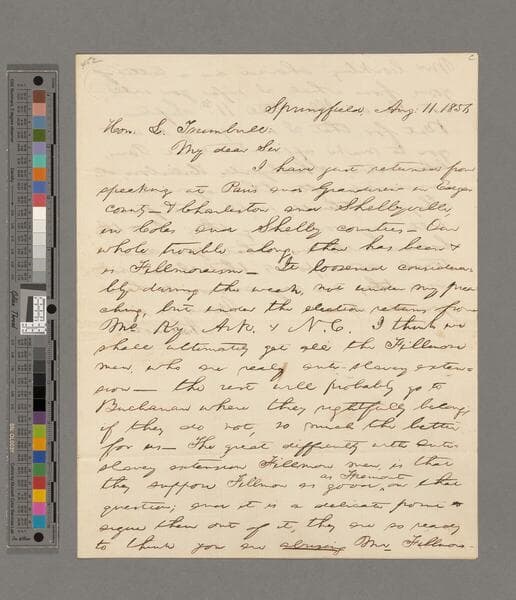 452
Springfield, Aug: 11. 1856
Hon: L. Trumbull:
My dear Sir
I have just returned from
speaking at Paris and Grandview in Edgar
county — & Charleston and Shelbyville,
in Coles and Shelby counties — Our
whole trouble along there has been &
is Fillmoreism — It loosened considera-
bly during the week, not under my prea-
ching, but under the election returns from
Mo. Ky. Ark. & N.C. I think we
shall ultimately get all the Fillmore
men, who are really anti-slavery exten-
sion — the rest will probably go to
Buchanan where they rightfully belong;
if they do not, so much the better
for us — The great difficulty with anti-
slavery extension Fillmore men, is that
they suppose Fillmore as good as Fremont on that
question; and it is a delicate point to
argue them out of it, they are so ready
to think you are abusing Mr. Fillmore —